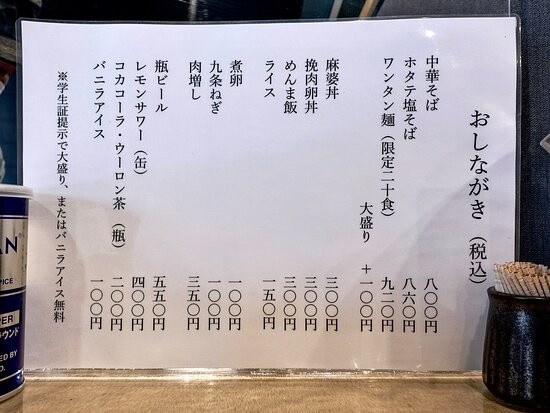 おしながき（税込）
中華そば 八〇〇円
ホタテ塩そば 八六〇円
ワンタン麺（限定二十食） 九二〇円
大盛り ＋一〇〇円
麻婆丼 三〇〇円
挽肉卵丼 三〇〇円
めんま飯 三〇〇円
ライス 一五〇円
煮卵 一〇〇円
九条ねぎ 一〇〇円
肉増し 三五〇円
瓶ビール 五五〇円
レモンサワー（缶） 四〇〇円
コカコーラ・ウーロン茶（瓶） 二〇〇円
バニラアイス 一〇〇円
※学生証提示で大盛り、またはバニラアイス無料
AN
PICE
PER
ラウンド
ED BY
D.